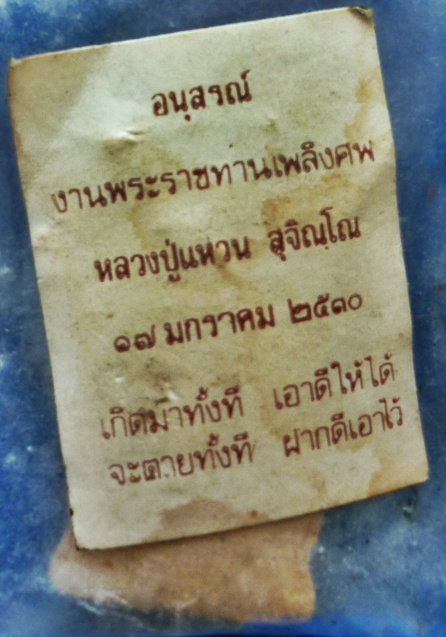 อนุสรณ์
งานพระราชทานเพลิงศพ
หลวงปู่แหวน สุจิณฺโณ
๑๗ มกราคม ๒๕๓๐
เกิดมาทั้งที เอาดีให้ได้
จะตายทั้งที ฝากดีเอาไว้